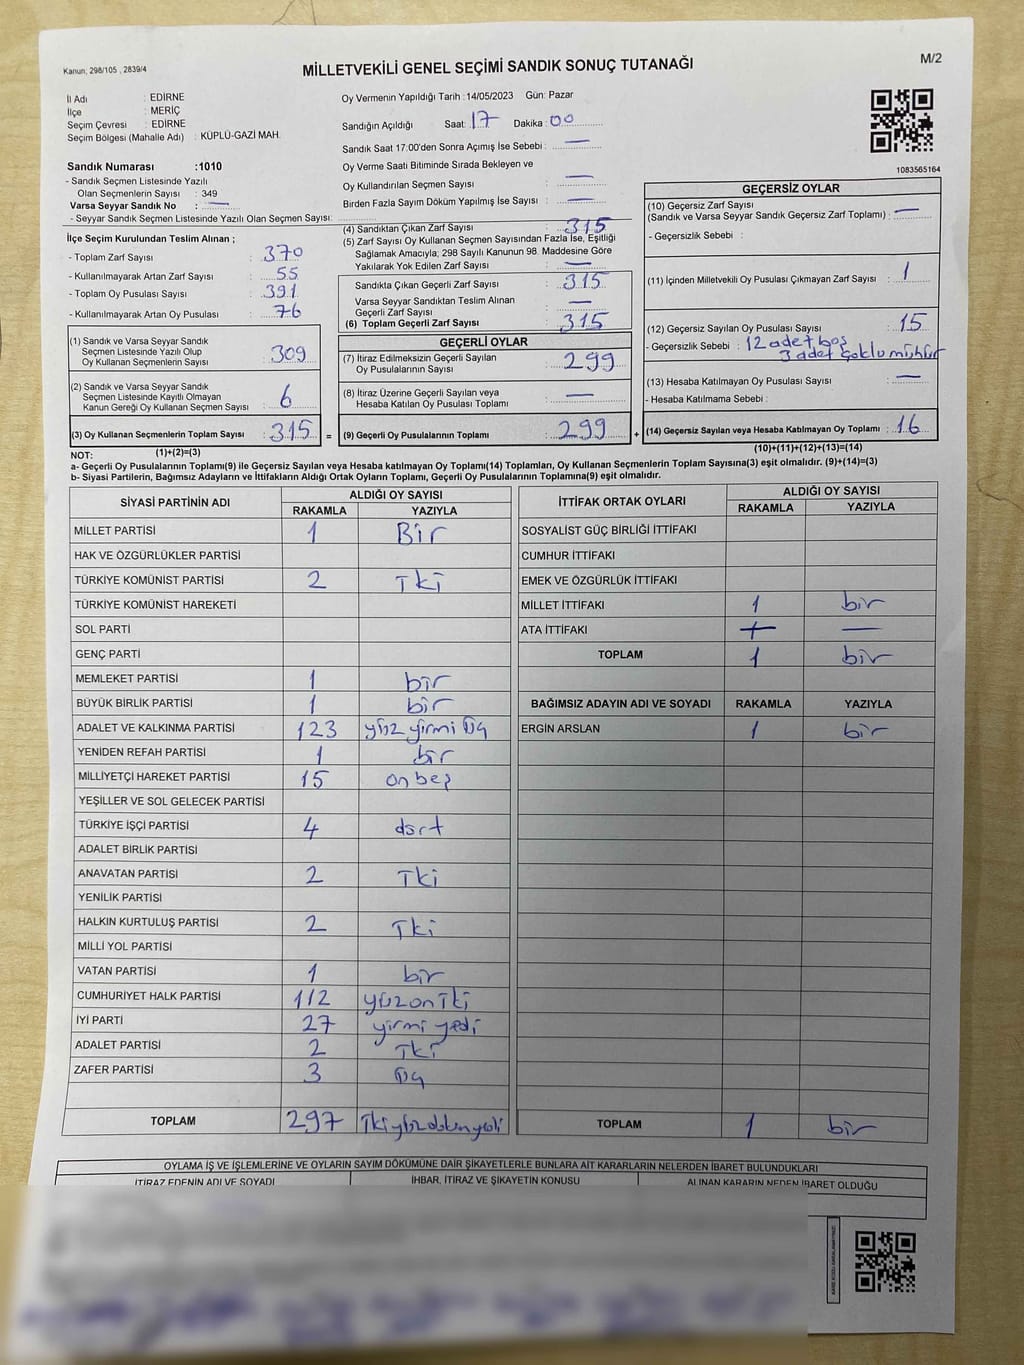 Kanun; 298/105 , 2839/4
MİLLETVEKİLİ GENEL SEÇİMİ SANDIK SONUÇ TUTANAĞI
M/2
İl Adı : EDİRNE
İlçe : MERİÇ
Seçim Çevresi : EDİRNE
Seçim Bölgesi (Mahalle Adı) : KÜPLÜ-GAZİ MAH.
Sandık Numarası :1010
- Sandık Seçmen Listesinde Yazılı
Olan Seçmenlerin Sayısı : 349
Varsa Seyyar Sandık No : —
- Seyyar Sandık Seçmen Listesinde Yazılı Olan Seçmen Sayısı:
Oy Vermenin Yapıldığı Tarih :14/05/2023 Gün: Pazar
Sandığın Açıldığı Saat: 17 Dakika: 00
Sandık Saat 17:00'den Sonra Açımış İse Sebebi : —
Oy Verme Saati Bitiminde Sırada Bekleyen ve
Oy Kullandırılan Seçmen Sayısı : —
Birden Fazla Sayım Döküm Yapılmış İse Sayısı : —
1083565164
İlçe Seçim Kurulundan Teslim Alınan ;
- Toplam Zarf Sayısı : 370
- Kullanılmayarak Artan Zarf Sayısı : 55
- Toplam Oy Pusulası Sayısı : 391
- Kullanılmayarak Artan Oy Pusulası : 76
(1) Sandık ve Varsa Seyyar Sandık
Seçmen Listesinde Yazılı Olup
Oy Kullanan Seçmenlerin Sayısı : 309
(2) Sandık ve Varsa Seyyar Sandık
Seçmen Listesinde Kayıtlı Olmayan
Kanun Gereği Oy Kullanan Seçmen Sayısı : 6
(3) Oy Kullanan Seçmenlerin Toplam Sayısı : 315
(1)+(2)=(3)
(4) Sandıktan Çıkan Zarf Sayısı : 315
(5) Zarf Sayısı Oy Kullanan Seçmen Sayısından Fazla İse, Eşitliği
Sağlamak Amacıyla; 298 Sayılı Kanunun 98. Maddesine Göre
Yakılarak Yok Edilen Zarf Sayısı : —
Sandıkta Çıkan Geçerli Zarf Sayısı : 315
Varsa Seyyar Sandıktan Teslim Alınan
Geçerli Zarf Sayısı : —
(6) Toplam Geçerli Zarf Sayısı : 315
GEÇERLİ OYLAR
(7) İtiraz Edilmeksizin Geçerli Sayılan
Oy Pusulalarının Sayısı : 299
(8) İtiraz Üzerine Geçerli Sayılan veya
Hesaba Katılan Oy Pusulası Toplamı : —
= (9) Geçerli Oy Pusulalarının Toplamı : 299
GEÇERSİZ OYLAR
(10) Geçersiz Zarf Sayısı
(Sandık ve Varsa Seyyar Sandık Geçersiz Zarf Toplamı) : —
- Geçersizlik Sebebi :
(11) İçinden Milletvekili Oy Pusulası Çıkmayan Zarf Sayısı : 1
(12) Geçersiz Sayılan Oy Pusulası Sayısı : 15
- Geçersizlik Sebebi : 12 adet boş
3 adet çoklu mühür
(13) Hesaba Katılmayan Oy Pusulası Sayısı : —
- Hesaba Katılmama Sebebi :
+ (14) Geçersiz Sayılan veya Hesaba Katılmayan Oy Toplamı : 16
(10)+(11)+(12)+(13)=(14)
NOT:
a- Geçerli Oy Pusulalarının Toplamı(9) ile Geçersiz Sayılan veya Hesaba katılmayan Oy Toplamı(14) Toplamları, Oy Kullanan Seçmenlerin Toplam Sayısına(3) eşit olmalıdır. (9)+(14)=(3)
b- Siyasi Partilerin, Bağımsız Adayların ve İttifakların Aldığı Ortak Oyların Toplamı, Geçerli Oy Pusulalarının Toplamına(9) eşit olmalıdır.
SİYASİ PARTİNİN ADI ALDIĞI OY SAYISI
RAKAMLA YAZIYLA
MİLLET PARTİSİ 1 Bir
HAK VE ÖZGÜRLÜKLER PARTİSİ
TÜRKİYE KOMÜNİST PARTİSİ 2 İki
TÜRKİYE KOMÜNİST HAREKETİ
SOL PARTİ
GENÇ PARTİ
MEMLEKET PARTİSİ 1 bir
BÜYÜK BİRLİK PARTİSİ 1 bir
ADALET VE KALKINMA PARTİSİ 123 yüz yirmi üç
YENİDEN REFAH PARTİSİ 1 bir
MİLLİYETÇİ HAREKET PARTİSİ 15 on beş
YEŞİLLER VE SOL GELECEK PARTİSİ
TÜRKİYE İŞÇİ PARTİSİ 4 dört
ADALET BİRLİK PARTİSİ
ANAVATAN PARTİSİ 2 İki
YENİLİK PARTİSİ
HALKIN KURTULUŞ PARTİSİ 2 İki
MİLLİ YOL PARTİSİ
VATAN PARTİSİ 1 bir
CUMHURİYET HALK PARTİSİ 112 yüz on iki
İYİ PARTİ 27 yirmi yedi
ADALET PARTİSİ 2 İki
ZAFER PARTİSİ 3 üç
TOPLAM 297 İki yüz doksan yedi
İTTİFAK ORTAK OYLARI ALDIĞI OY SAYISI
RAKAMLA YAZIYLA
SOSYALİST GÜÇ BİRLİĞİ İTTİFAKI
CUMHUR İTTİFAKI
EMEK VE ÖZGÜRLÜK İTTİFAKI
MİLLET İTTİFAKI 1 bir
ATA İTTİFAKI — —
TOPLAM 1 bir
BAĞIMSIZ ADAYIN ADI VE SOYADI RAKAMLA YAZIYLA
ERGİN ARSLAN 1 bir
TOPLAM 1 bir
OYLAMA İŞ VE İŞLEMLERİNE VE OYLARIN SAYIM DÖKÜMÜNE DAİR ŞİKAYETLERLE BUNLARA AİT KARARLARIN NELERDEN İBARET BULUNDUKLARI
İTİRAZ EDENİN ADI VE SOYADI İHBAR, İTİRAZ VE ŞİKAYETİN KONUSU ALINAN KARARIN NEDEN İBARET OLDUĞU